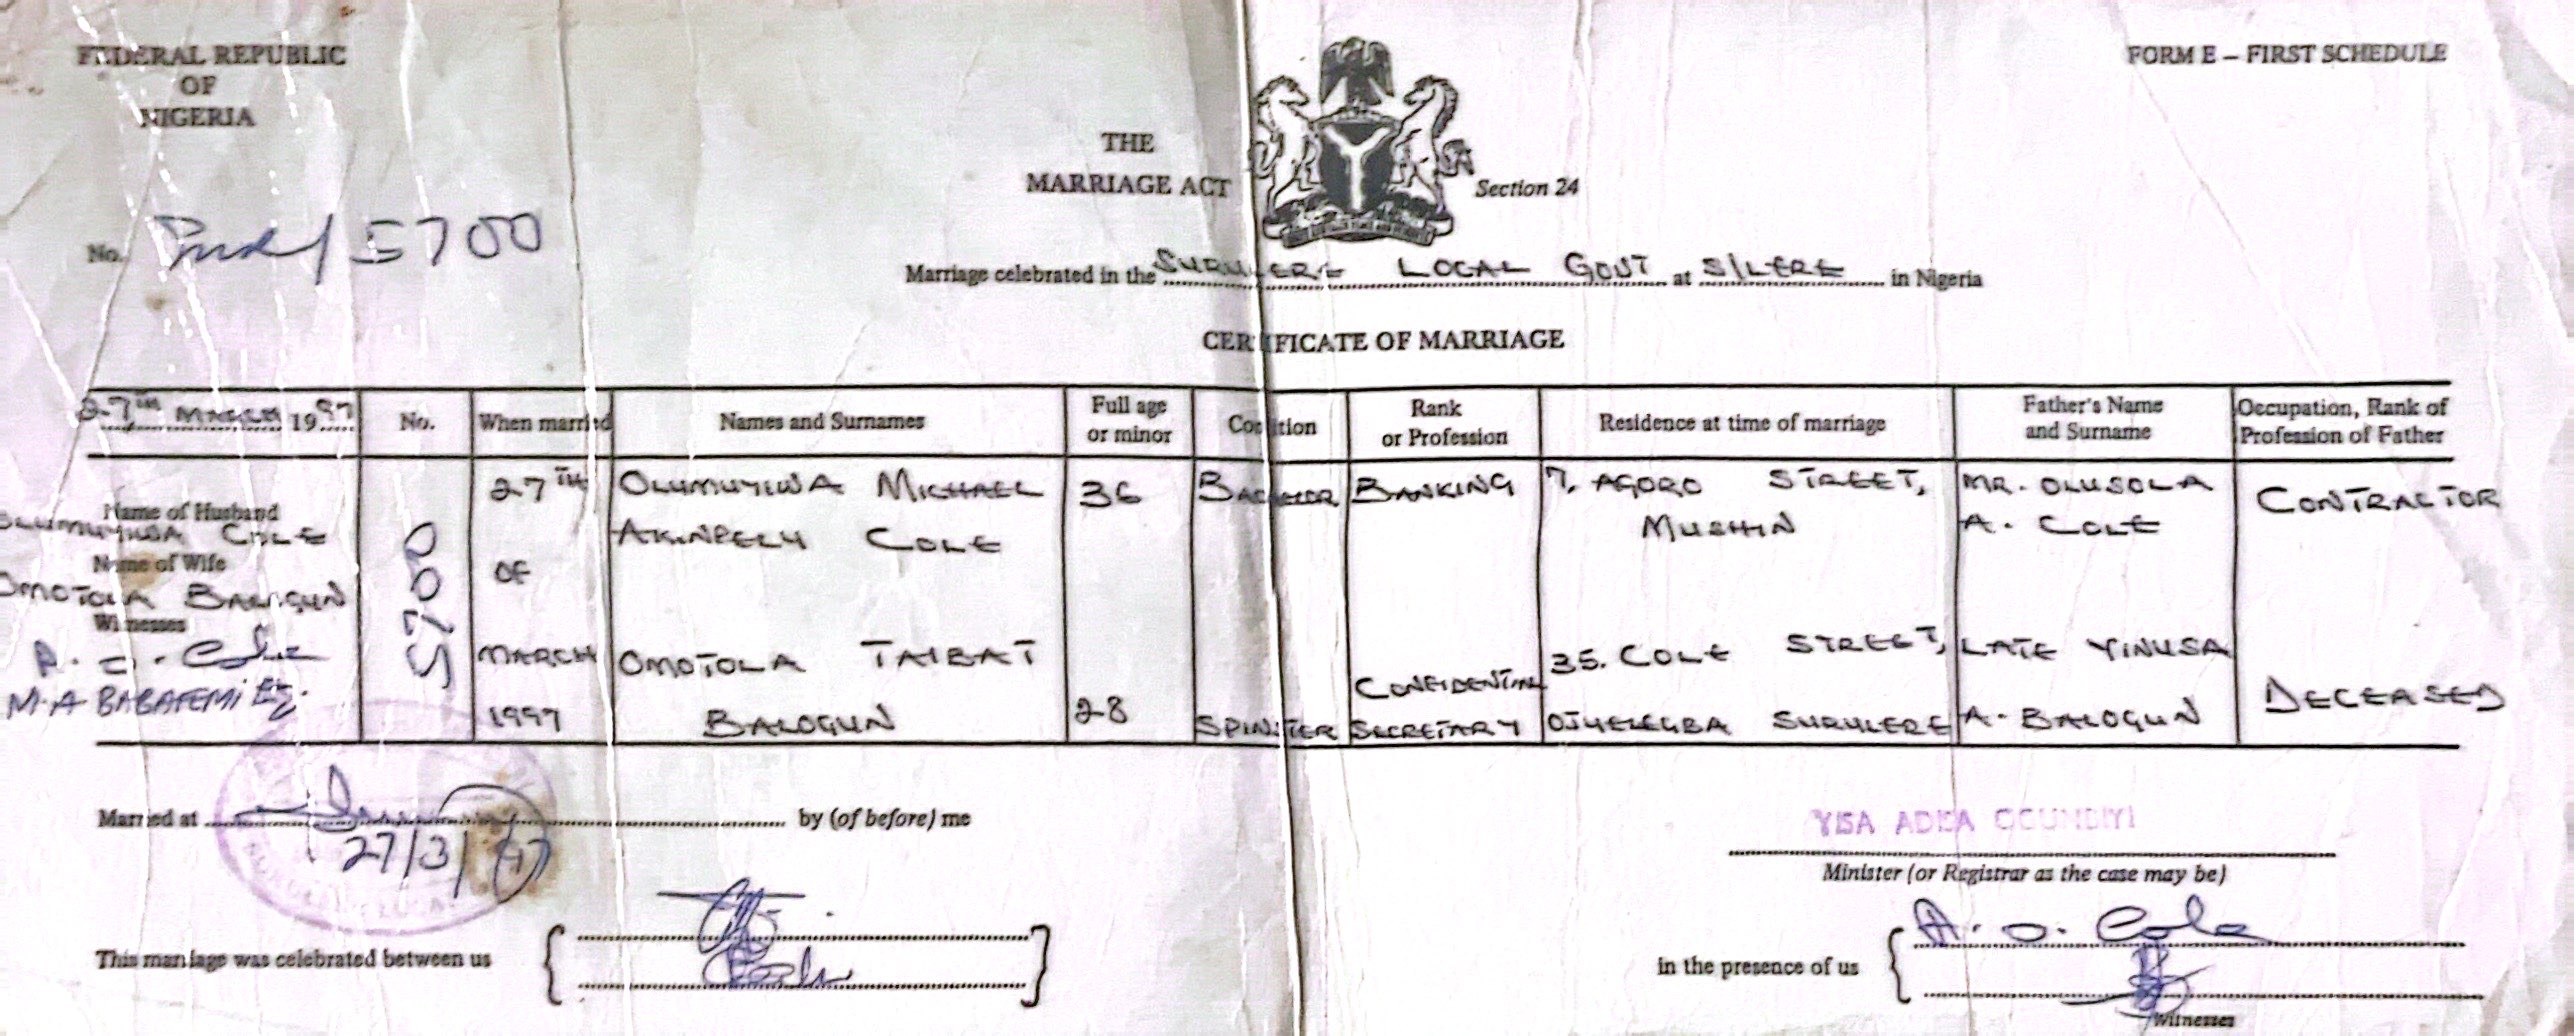 FEDERAL REPUBLIC
OF
NIGERIA
FORM E – FIRST SCHEDULE
THE
MARRIAGE ACT
Section 24
No. 5700
Marriage celebrated in the SURULERE LOCAL GOVT at S/LERE in Nigeria
CERTIFICATE OF MARRIAGE
27TH MARCH 1997
No.
When married
Names and Surnames
Full age
or minor
Condition
Rank
or Profession
Residence at time of marriage
Father's Name
and Surname
Occupation, Rank of
Profession of Father
Name of Husband
OLUMUYIWA COLE
Name of Wife
OMOTOLA BALOGUN
Witnesses
Cole
M.A BABAFEMI Esq.
5700
27TH
OF
MARCH
1997
OLUMUYIWA MICHAEL
AKINPELU COLE
36
BACHELOR
BANKING
7, AGORO STREET,
MUSHIN
MR. OLUSOLA
A. COLE
CONTRACTOR
OMOTOLA TAIBAT
BALOGUN
28
SPINSTER
CONFIDENTIAL
SECRETARY
35. COLE STREET,
OJUELEGBA SURULERE
LATE YINUSA
A. BALOGUN
DECEASED
Married at by (of before) me
27/3/97
YISA ADISA OGUNDIYI
Minister (or Registrar as the case may be)
This marriage was celebrated between us
in the presence of us
A. O. Cole
Witnesses